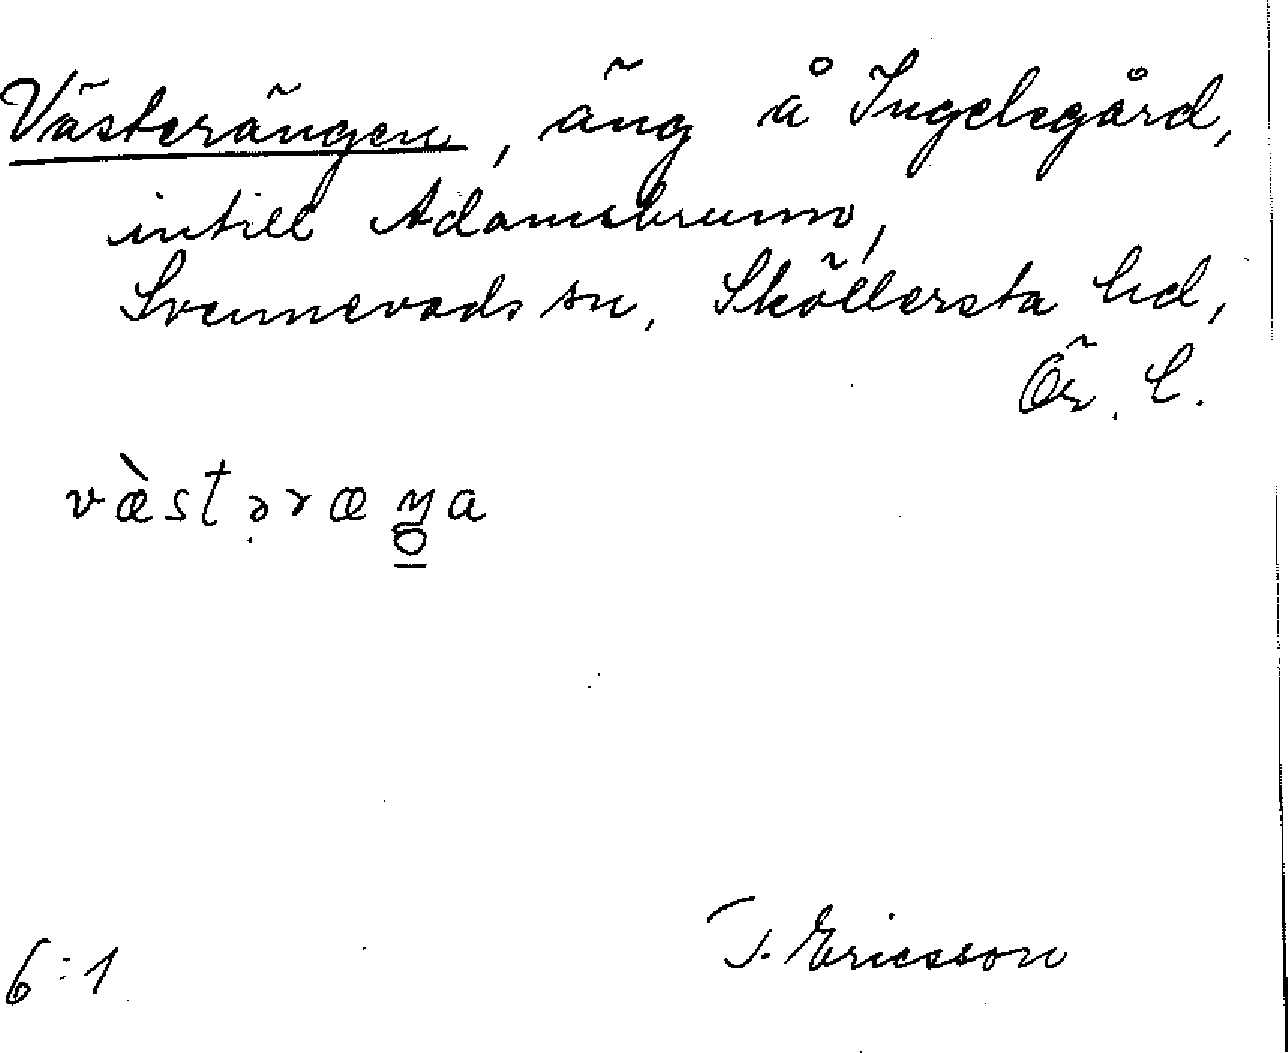 Västerängen, äng å Ingelsgård,
intill Adamsbrunn,
Svennevads sn, Sköllersta hd,
Ör. l.
væ̀stəræŋa
6:1
T. Ericsson